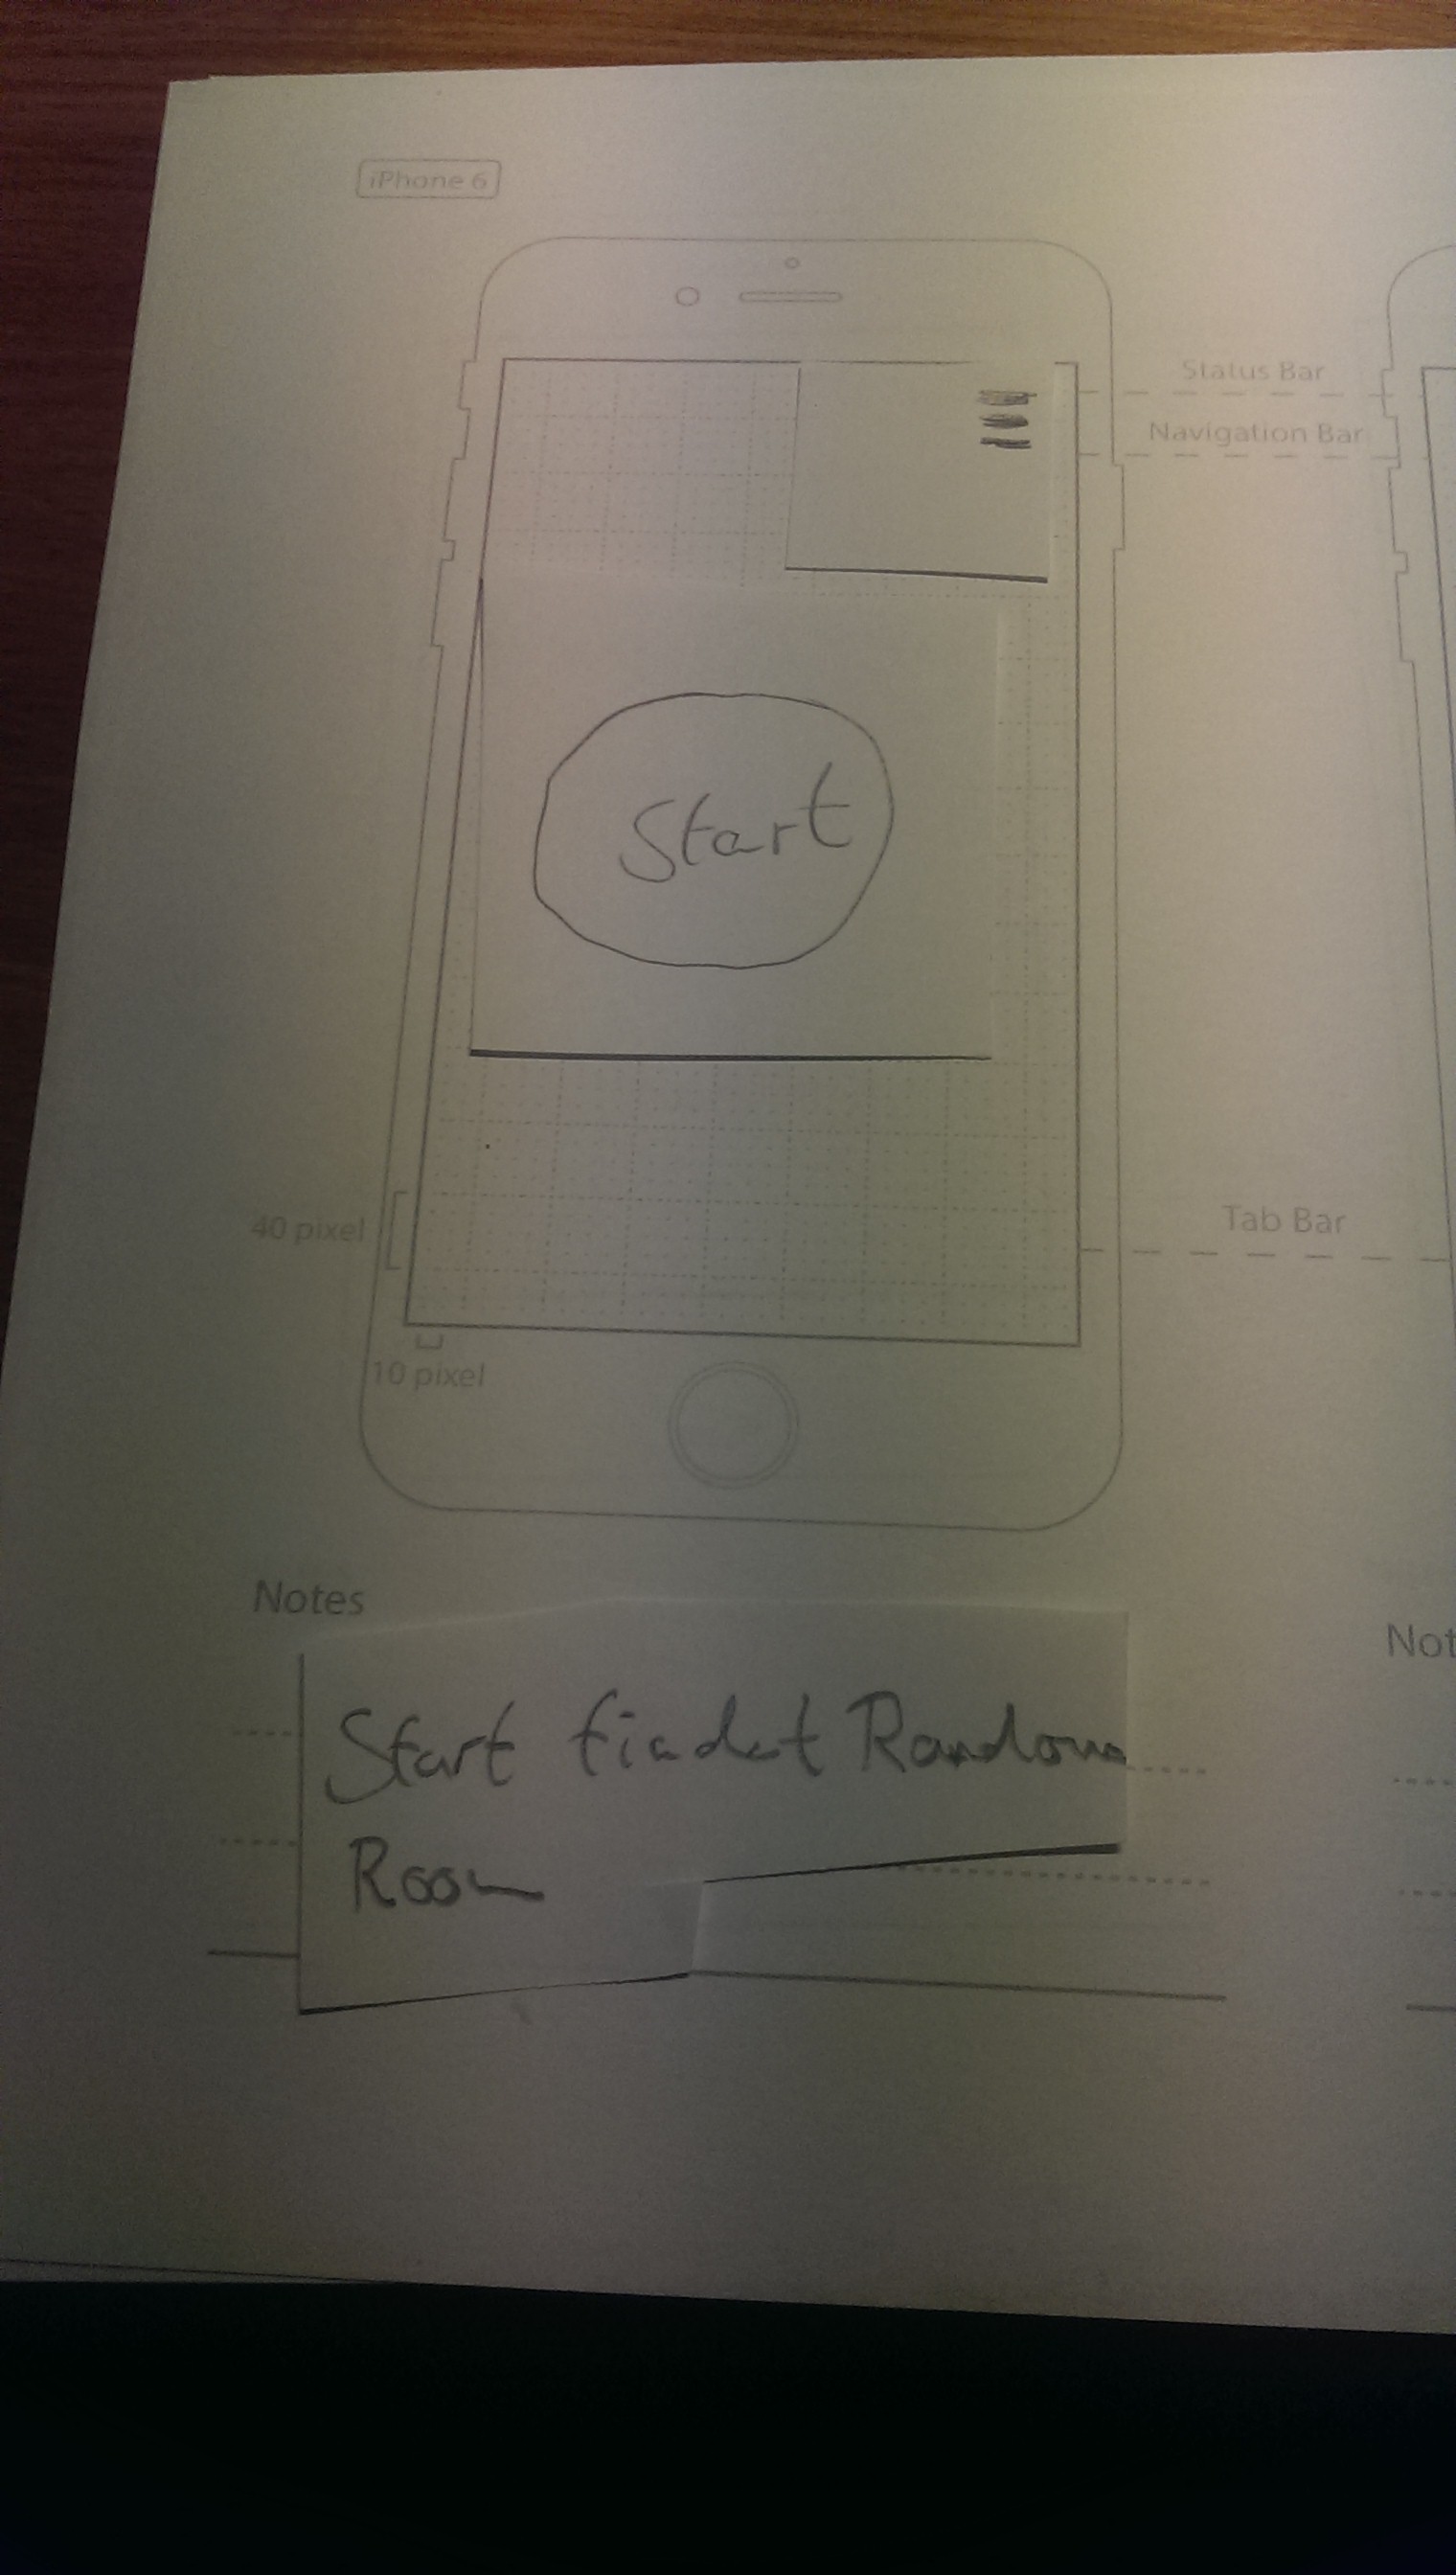 iPhone 6
Status Bar
Navigation Bar
Start
40 pixel
Tab Bar
10 pixel
Notes
Not
Start findet Random
Room